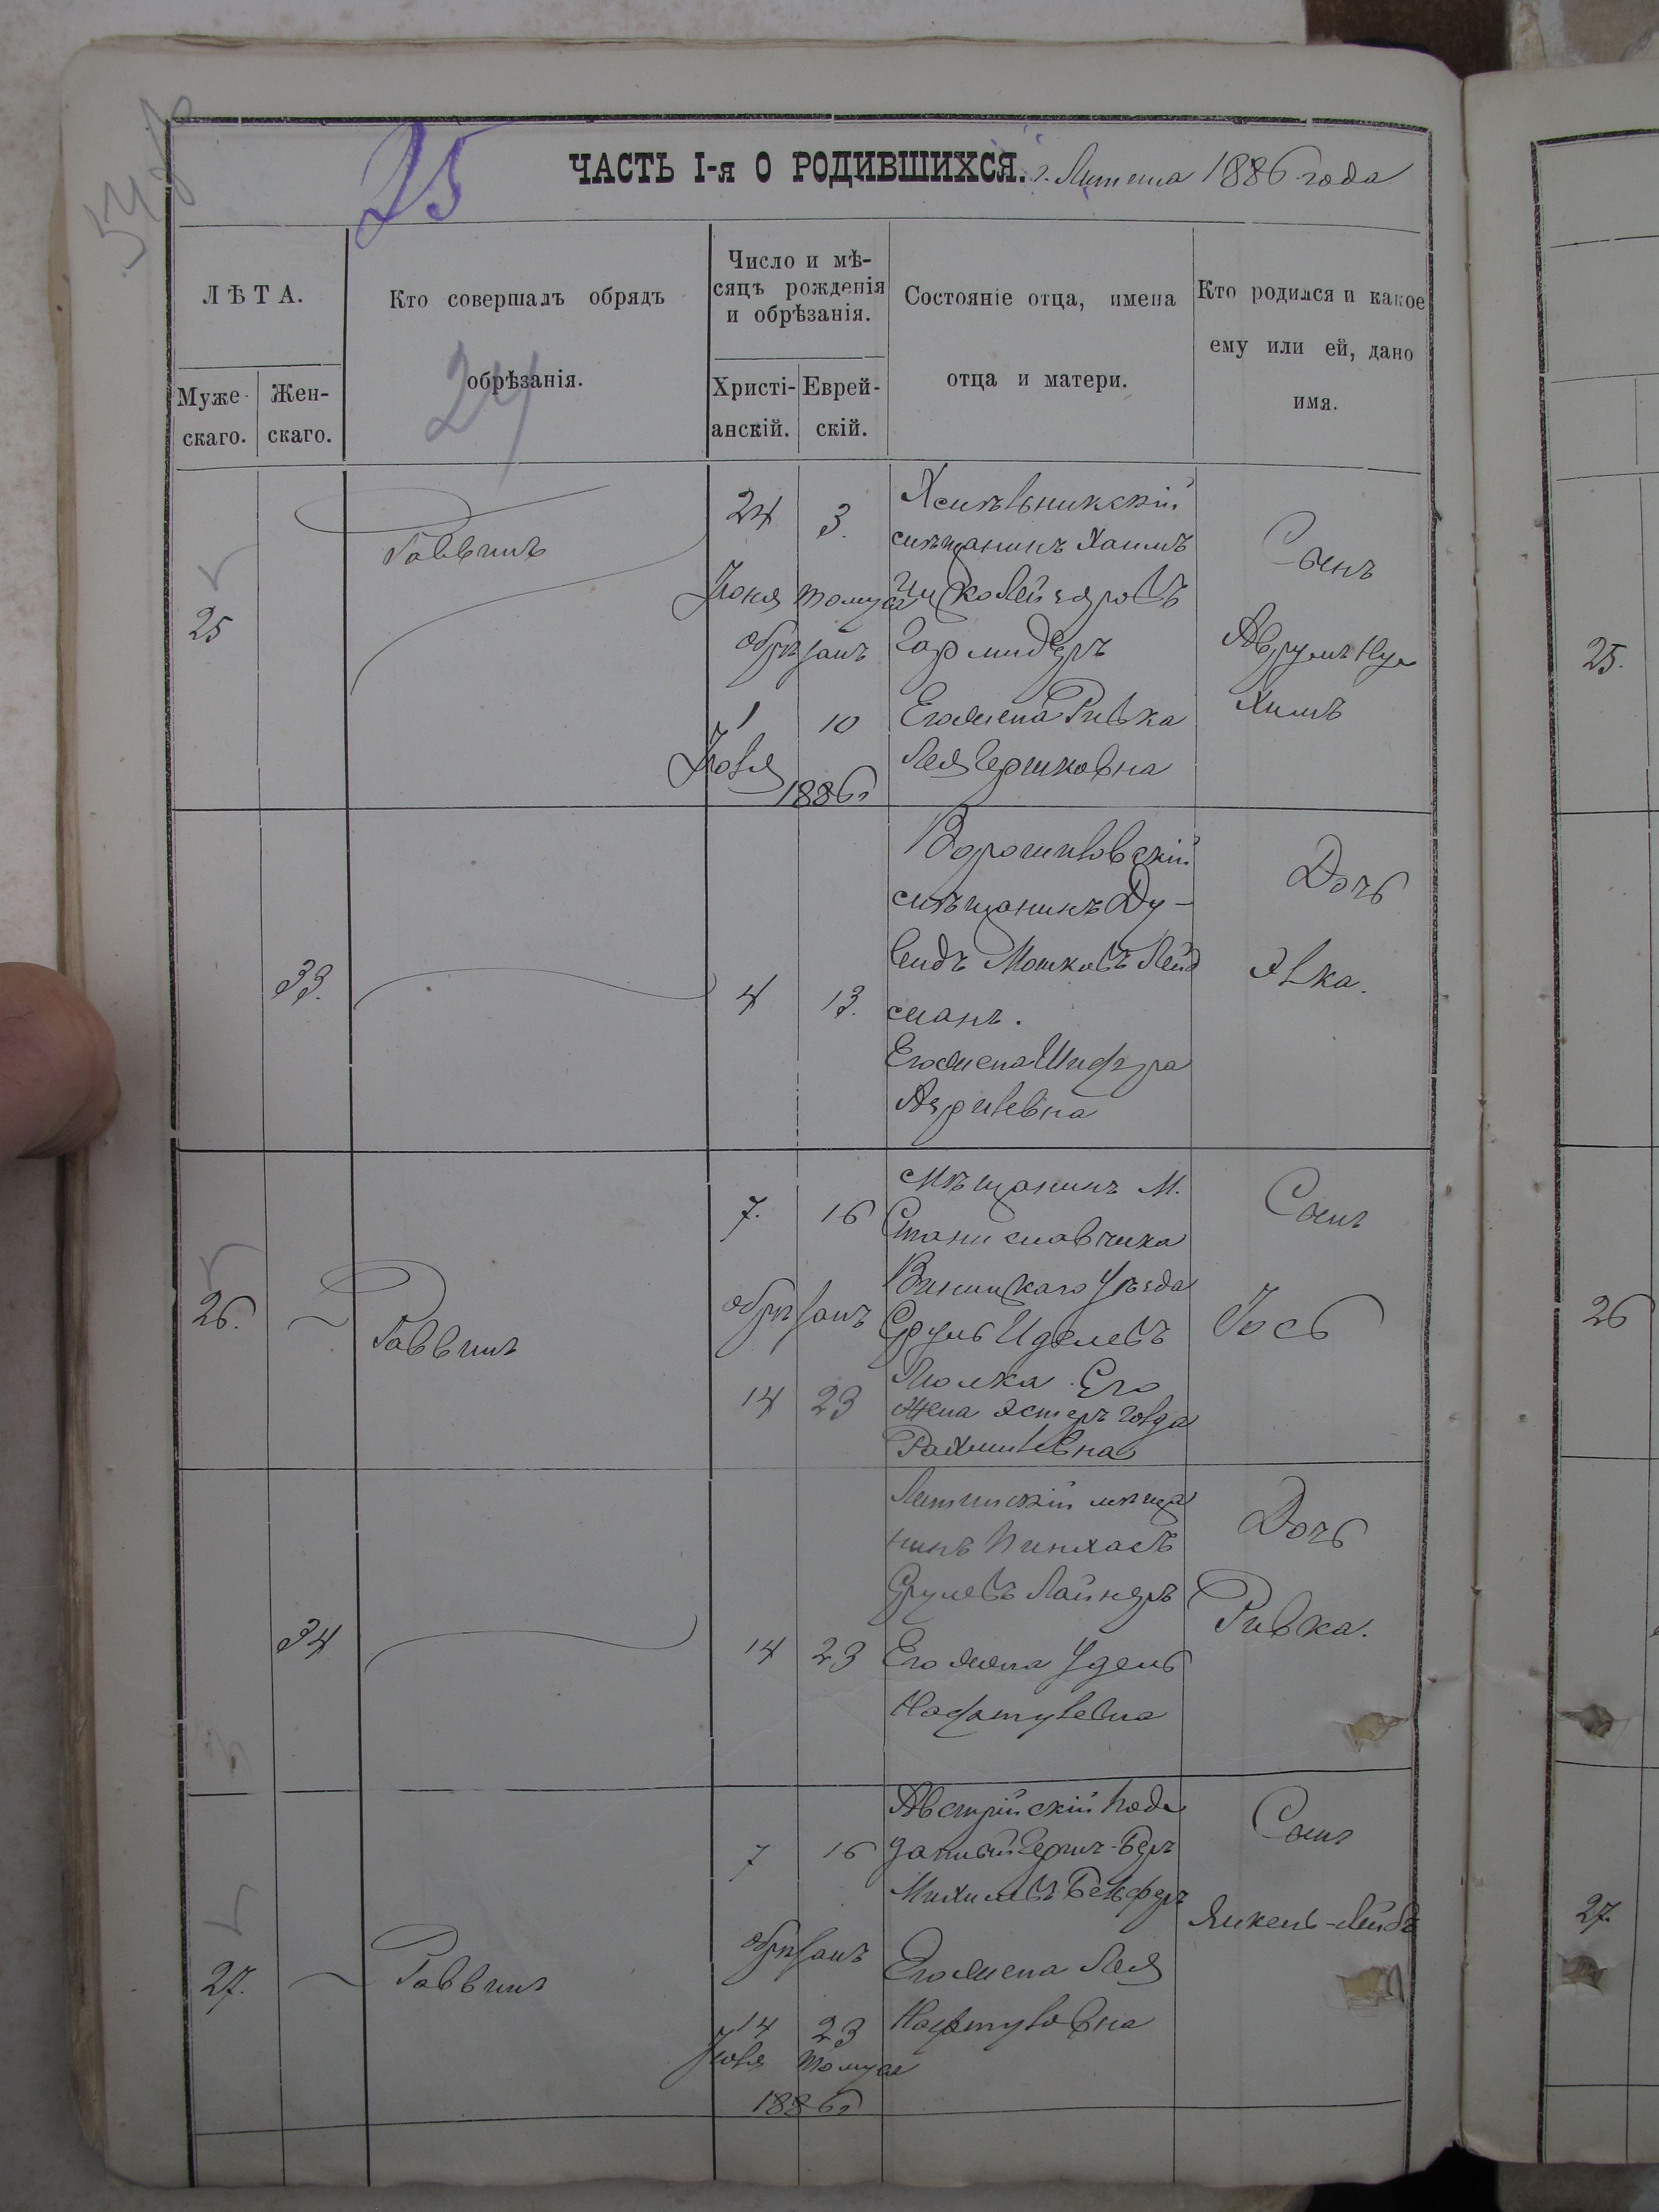 25
ЧАСТЬ I-я О РОДИВШИХСЯ. г. Литина 1886 года
ЛѢТА.
Муже-
скаго.
Жен-
скаго.
Кто совершалъ обрядъ
обрѣзанія.
24
Число и мѣ-
сяцъ рожденія
и обрѣзанія.
Христі-
анскій.
Еврей-
скій.
Состояніе отца, имена
отца и матери.
Кто родился и какое
ему или ей, дано
имя.
25
Раввинъ
24 3.
Іюня Томуза
обрѣзанъ
1 10
Іюля
1886 г
Хмѣльникскій
мѣщанинъ Хаимъ
Ицко
Его жена Ривка
Лея Гершковна
Сынъ
Аврумъ Ну
химъ
33.
4 13.
Ворошиловскій
мѣщанинъ Ду-
видъ Мошковъ Лейд
манъ.
Его жена Шифра
Азрилевна
Дочь
26.
Раввинъ
7. 16
обрѣзанъ
14 23
Мѣщанинъ М.
Станиславчика
Винницкаго уѣзда
Сруль Иделевъ
Его
жена Эстеръ Голда
Рахмилевна
Сынъ
Іось
34
14 23
Литинскій мѣща
нинъ Пинхасъ
Срулевъ Лайнеръ
Его жена Удель
Нафтулевна
Дочь
Ривка.
27.
Раввинъ
7 16
обрѣзанъ
14 23
Іюля Томуза
1886 г
Австрійскій подъ
данный Гершъ-Беръ
Михилевъ
Его жена Лея
Нафтуловна
Сынъ
Янкель-Лейбъ
25.
26
27.